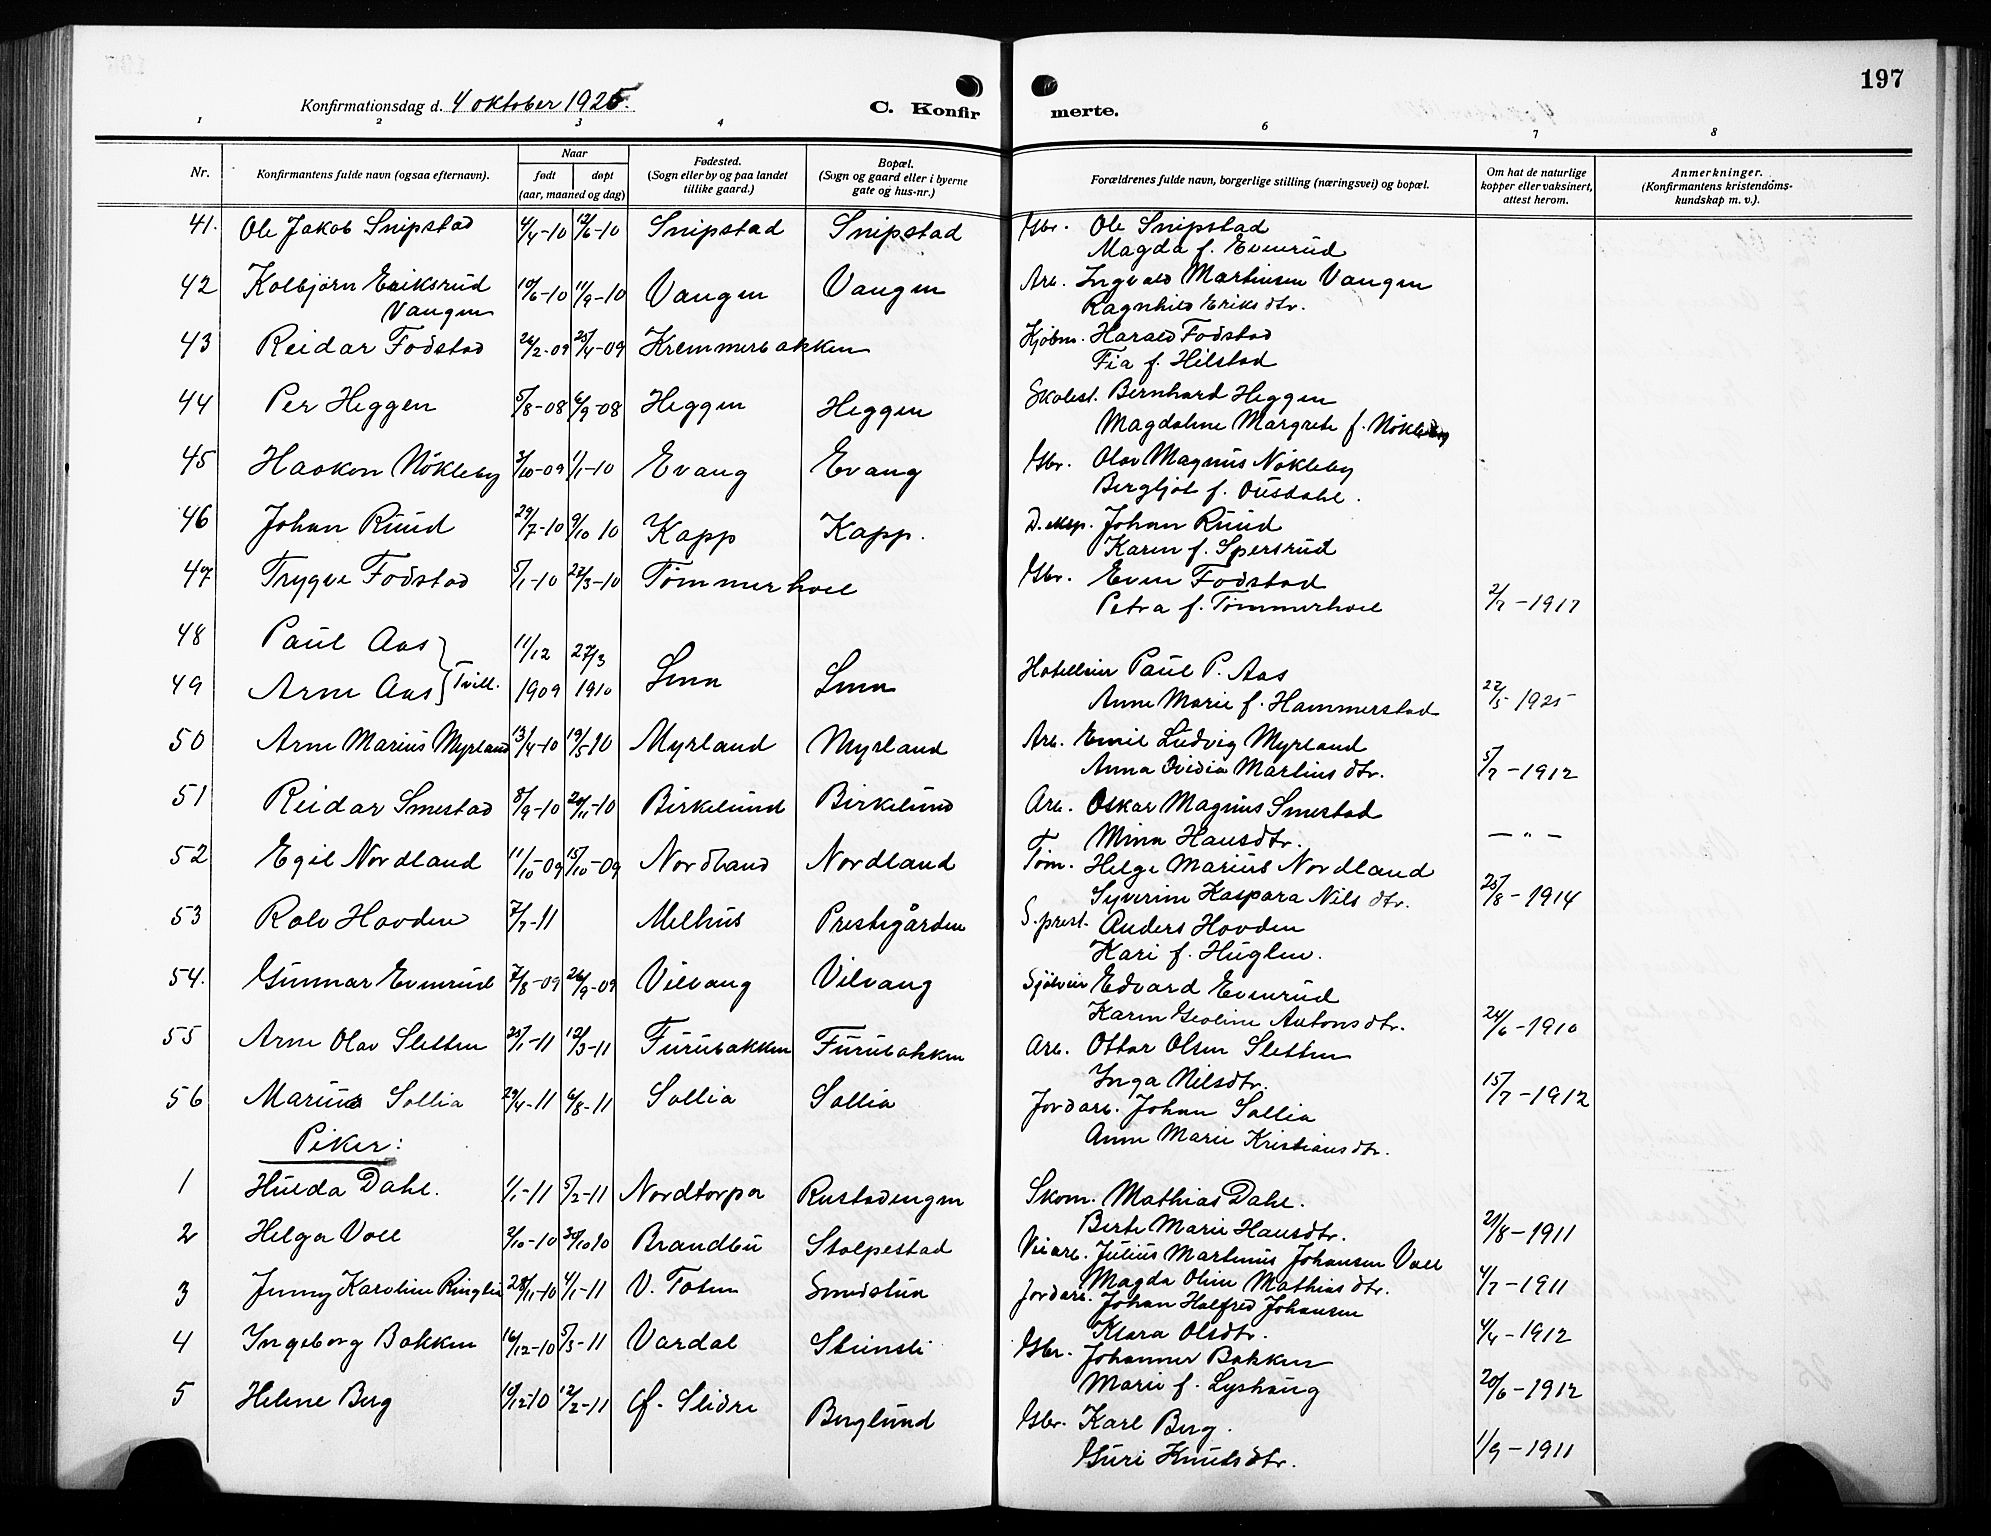 197
Konfirmationsdag d. 4 oktober 1925.
C. Konfir merte.
1 2 3 4 5 6 7 8
Nr.
Konfirmantens fulde navn (ogsaa efternavn).
Naar
født døpt
(aar, maaned og dag)
Fødested.
(Sogn eller by og paa landet
tillike gaard.)
Bopæl.
(Sogn og gaard eller i byerne
gate og hus-nr.)
Forældrenes fulde navn, borgerlige stilling (næringsvei) og bopæl.
Om hat de naturlige
kopper eller vaksinert,
attest herom.
Anmerkninger.
(Konfirmantens kristendoms-
kundskap m. v.).
41. Ole Jakob Snipstad 4/4-10 12/6-10 Snipstad Snipstad Gbr. Ole Snipstad
Magda f. Evenrud
42 Kolbjørn Eriksrud 10/6-10 11/9-10 Vangen Vangen Arb. Ingvald Martinsen Vangen
Vangen Ragnhild Eriksdtr.
43 Reidar Fodstad 26/2-09 25/4-09 Kremmerbakken Kjøbm. Harald Fodstad
Fia f. Hilstad
44 Per Heggen 5/8-08 6/9-08 Heggen Heggen Skolest. Bernhard Heggen
Magdalene Margrete f. Nøkleby
45 Haakon Nøkleby 3/10-09 1/1-10 Evang Evang Gbr. Olav Magnus Nøkleby
Bergljot f. Ousdahl.
46 Johan Ruud 29/7-10 9/10 10 Kapp Kapp. D. eksp. Johan Ruud
Karen f. Spersrud
47 Trygve Fodstad 5/1-10 27/3-10 Tømmerhoel Gbr. Even Fodstad
Petra f. Tømmerhoel 2/7-1917
48 Paul Aas
49 Arne Aas } Tvill. 11/12 1909 27/3 1910 Lena Lena Hotelleier Paul P. Aas
Anne Marie f. Hammerstad 27/5 1925
50 Arne Marius Myrland 13/4-10 19/5 10 Myrland Myrland Arb. Emil Ludvig Myrland
Anna Ovidia Martinsdtr. 5/7-1912
51 Reidar Smestad 8/9-10 20/11-10 Birkelund Birkelund Arb. Oskar Magnus Smestad
Mina Hansdtr. — " —
52 Egil Nordland 11/10-09 15/10-09 Nordland Nordland Tøm. Helge Marius Nordland
Syverine Kaspara Nilsdtr. 25/8-1914
53 Rolv Hovden 7/7-11 Melhus Prestegården S. prest. Anders Hovden
Kari f. Huglen.
54. Gunnar Evenrud 7/8-09 26/9-09 Vilvang Vilvang Sjøleier Edvard Evenrud
Karen Geoline Antonsdtr. 24/6-1910
55 Arne Olav Sletten 25/1-11 12/3-11 Furubakken Furubakken Arb. Ottar Olsen Sletten
Inga Nilsdtr. 15/7-1912
56 Marius Sollia 29/4-11 6/8-11 Sollia Sollia Jordarb. Johan Sollia
Anne Marie Kristiansdtr.
Piker:
1 Hulda Dahl. 1/1-11 5/2-11 Nordtorpa Rustadengen Skom. Mathias Dahl.
Berte Marie Hansdtr. 21/8-1911
2 Helga Voll 2/10-10 30/10 10 Brandbu Stolpestad Veiarb. Julius Martinus Johansen Voll
Magda Oline Mathiasdtr. 4/7-1911
3 Jenny Karoline Ringlie 28/11-10 4/1-11 V. Toten Smedstun Jordarb. Johan Halfred Johansen
Klara Olsdtr. 4/4-1912
4 Ingeborg Bakken 16/12-10 5/3-11 Vardal Steinsli Gbr. Johannes Bakken
Marie f. Lyshaug 20/6-1912
5 Helene Berg 10/12 10 12/2-11 Ø. Slidre Berglund Gbr. Karl Berg.
Guri Knutsdtr. 1/9-1911